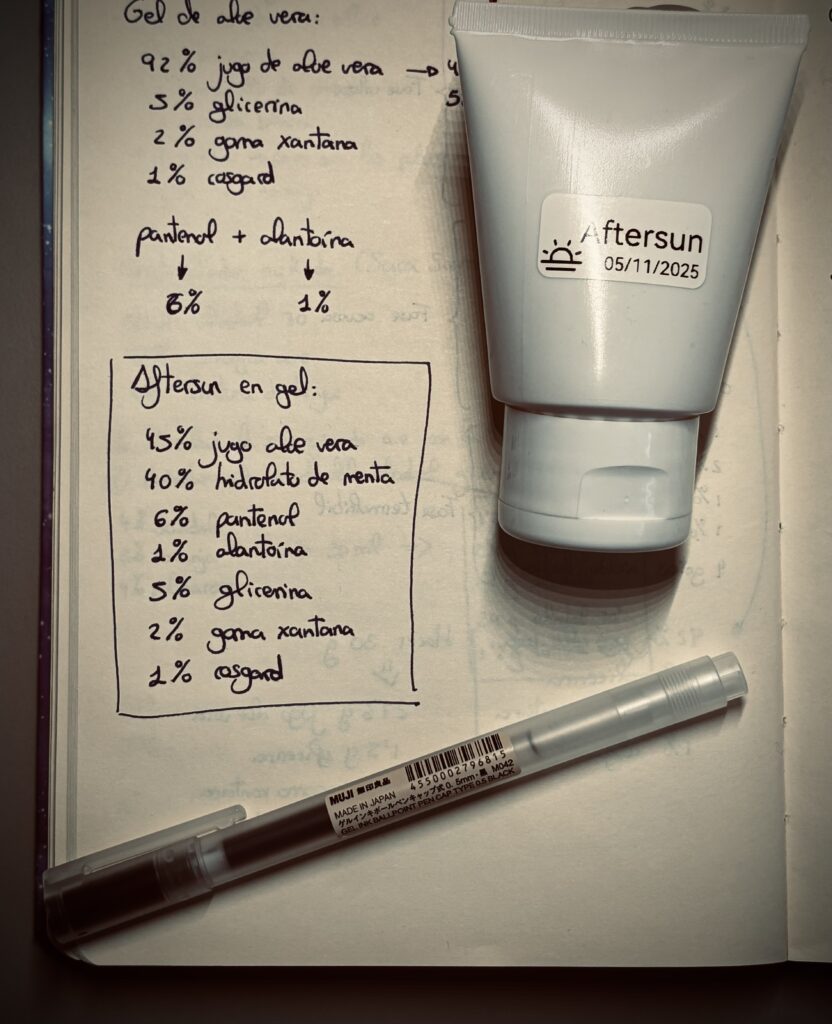 Gel de aloe vera:
92% jugo de aloe vera →
5% glicerina
2% goma xantana
1% cosgard
pantenol + alantoína
↓ ↓
6% 1%
Aftersun en gel:
45% jugo aloe vera
40% hidrolato de menta
6% pantenol
1% alantoína
5% glicerina
2% goma xantana
1% cosgard
Aftersun
05/11/2025
MUJI 無印良品
4550002796815
MADE IN JAPAN
ゲルインキボールペンキャップ式0.5mm・黒 M042
GEL INK BALLPOINT PEN CAP TYPE 0.5 BLACK